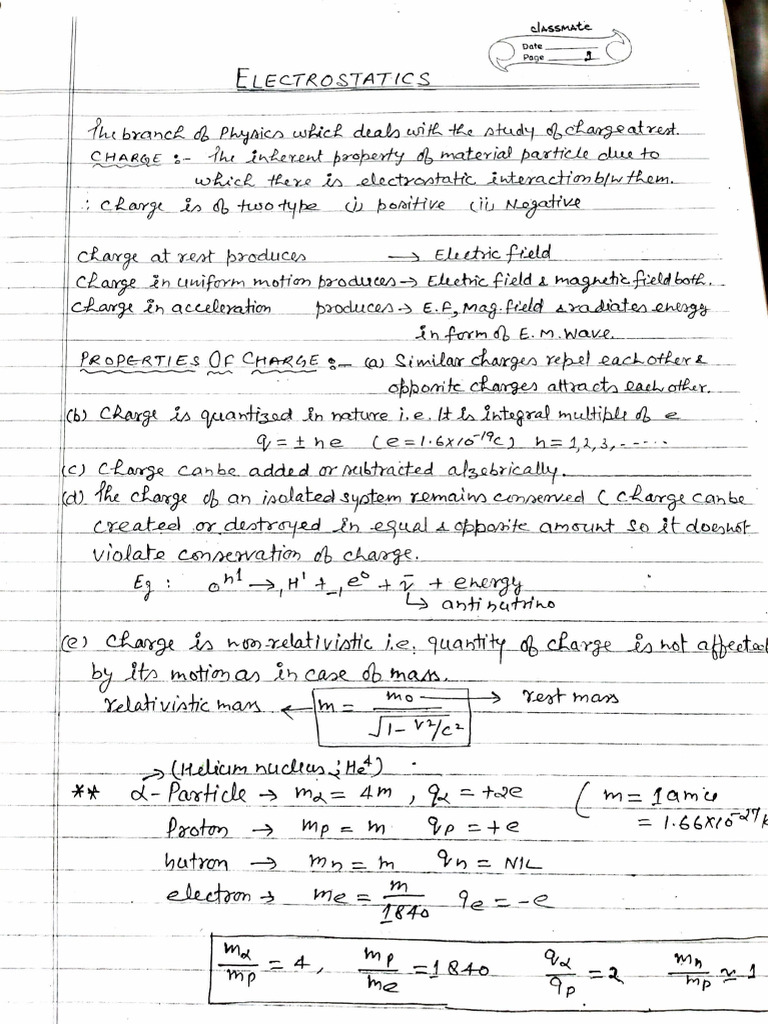 classmate
Date
Page 1
ELECTROSTATICS
The branch of Physics which deals with the study of charge at rest.
CHARGE :- The inherent property of material particle due to
which there is electrostatic interaction b/w them.
∴ Charge is of two type (i) positive (ii) Negative
Charge at rest produces → Electric field
Charge in uniform motion produces → Electric field & magnetic field both.
Charge in acceleration produces → E.F, Mag. field & radiates energy
in form of E.M. Wave.
PROPERTIES OF CHARGE :- (a) Similar charges repel each other &
opposite charges attracts each other.
(b) Charge is quantized in nature i.e. It is integral multiple of e
q = ± ne (e = 1.6×10⁻¹⁹C) n = 1,2,3,-----
(c) Charge can be added or subtracted algebrically.
(d) The charge of an isolated system remains conserved ( Charge can be
created or destroyed in equal & opposite amount so it does not
violate conservation of charge.
Eg : ₀n¹ → ₁H¹ + ₋₁e⁰ + ν̄ + energy
↳ antinutrino
(e) Charge is non-relativistic i.e. quantity of charge is not affected
by its motion as in case of mass.
relativistic mass ← m = m₀/√1 - v²/c² → rest mass
→ (Helium nucleus ; He⁴)
** α-Particle → mα = 4m , qα = +2e ( m = 1amu
Proton → mp = m qp = +e = 1.66×10⁻²⁷k
nutron → mn = m qn = NIL
electron → me = m/1840 qe = -e
mα/mp = 4, mp/me = 1840 qα/qp = 2 mn/mp ≈ 1